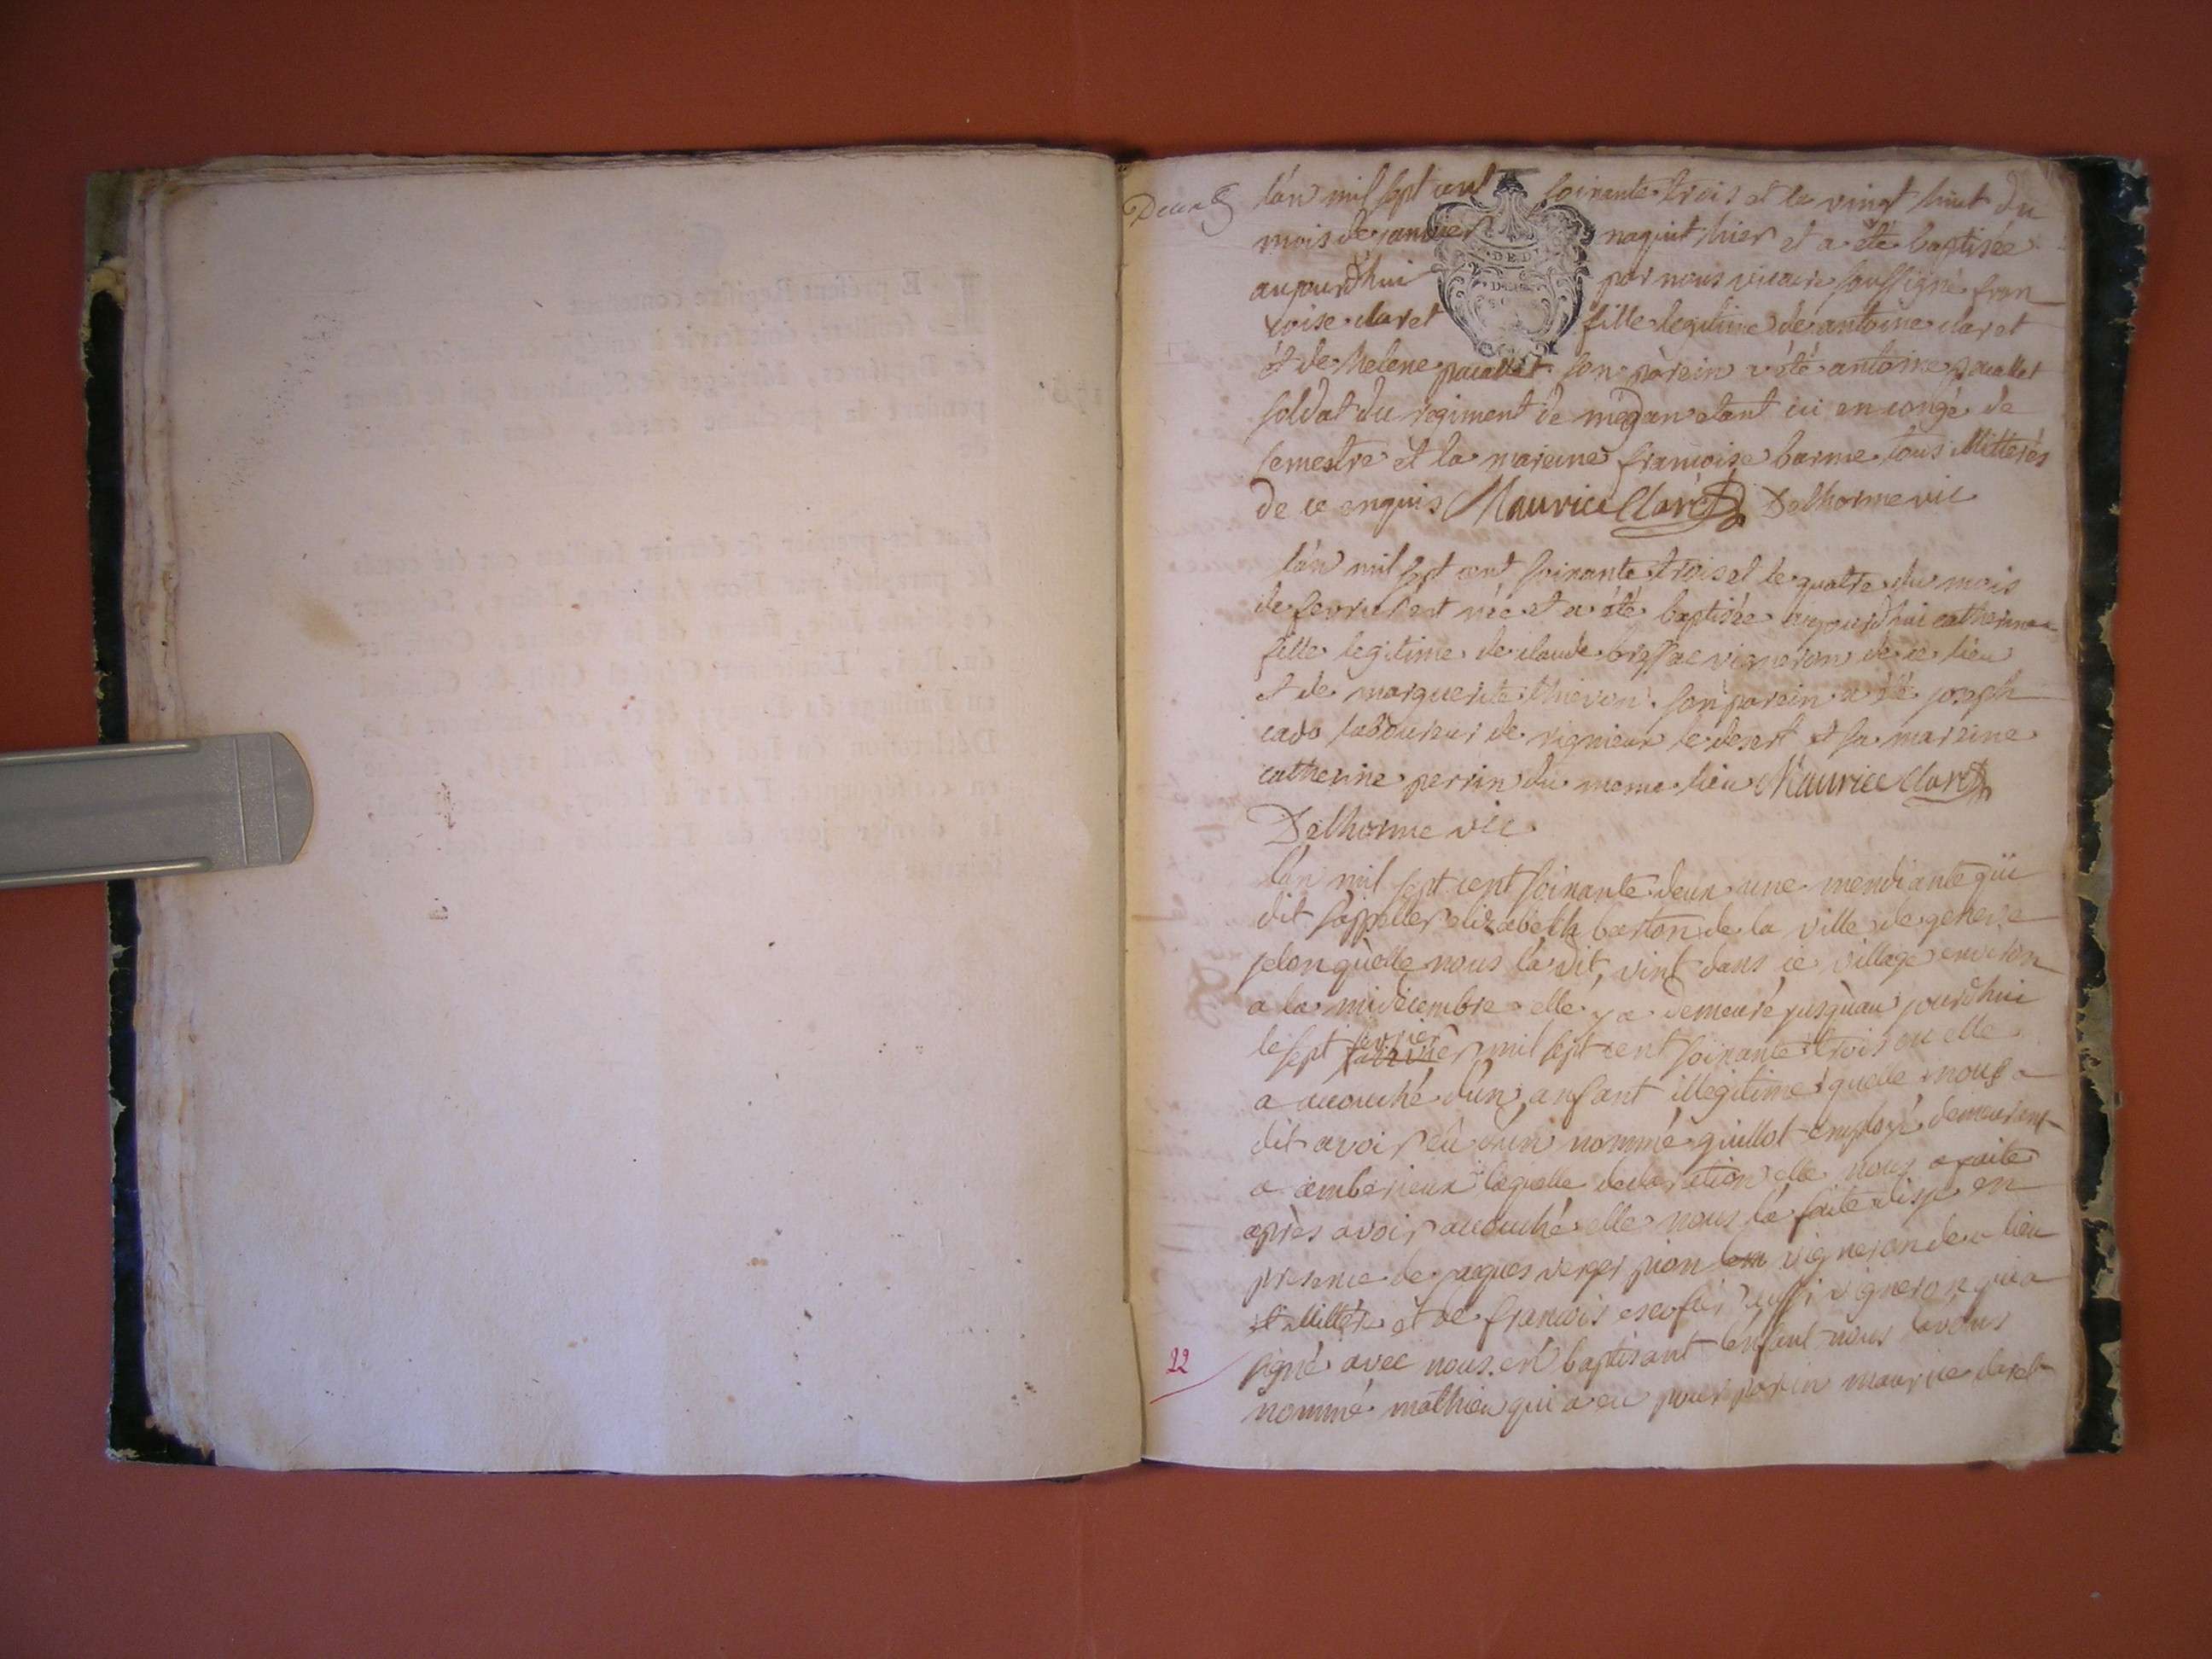 lán mil sept cent soixante trois et le vingt huit du
mois de janvier naquit hier et a eté baptisée
aujourdhui par nous vicaire soussigné fran
coise claret fille legitime de antoine claret
et de helene pacallet son parein a été antoine pacallet
soldat du regiment de etant ici en congé de
semestre et la mareine francoise barme tous illitterés
de ce enquis Maurice Claret Delhorme vic
lán mil sept cent soixante trois et le quatre du mois
de fevrier est née et a été baptisée aujourdhui catherine
fille legitime de claude bressac vigneron de ce lieu
et de marguerite thievon. son parein a été joseph
cado laboureur de vignieux le desert et sa mareine
catherine perrin du meme lieu Maurice Claret
Delhorme vic
lán mil sept cent soixante deux une mendiante qui
dit sappeller elizabeth barton de la ville de geneve
selon quelle nous la dit, vint dans ce village environ
a la midecembre elle y a demeuré jusqu'au jourdhui
le sept fevrier mil sept cent soixante trois ou elle
a accouché d'un anfant illegitime quelle nous a
dit avoir eû d'un nommé guillot employé demeurent
a amberieux laquelle declaration elle nous a faite
après avoir accouché elle nous la faite disje en
presence de jaques verger pion vigneron de ce lieu
illitteré et de francois escofier aussi vigneron qui a
signé avec nous. en baptisant lénfant nous lavons
22
nommé mathieu qui a eu pour parein maurice claret